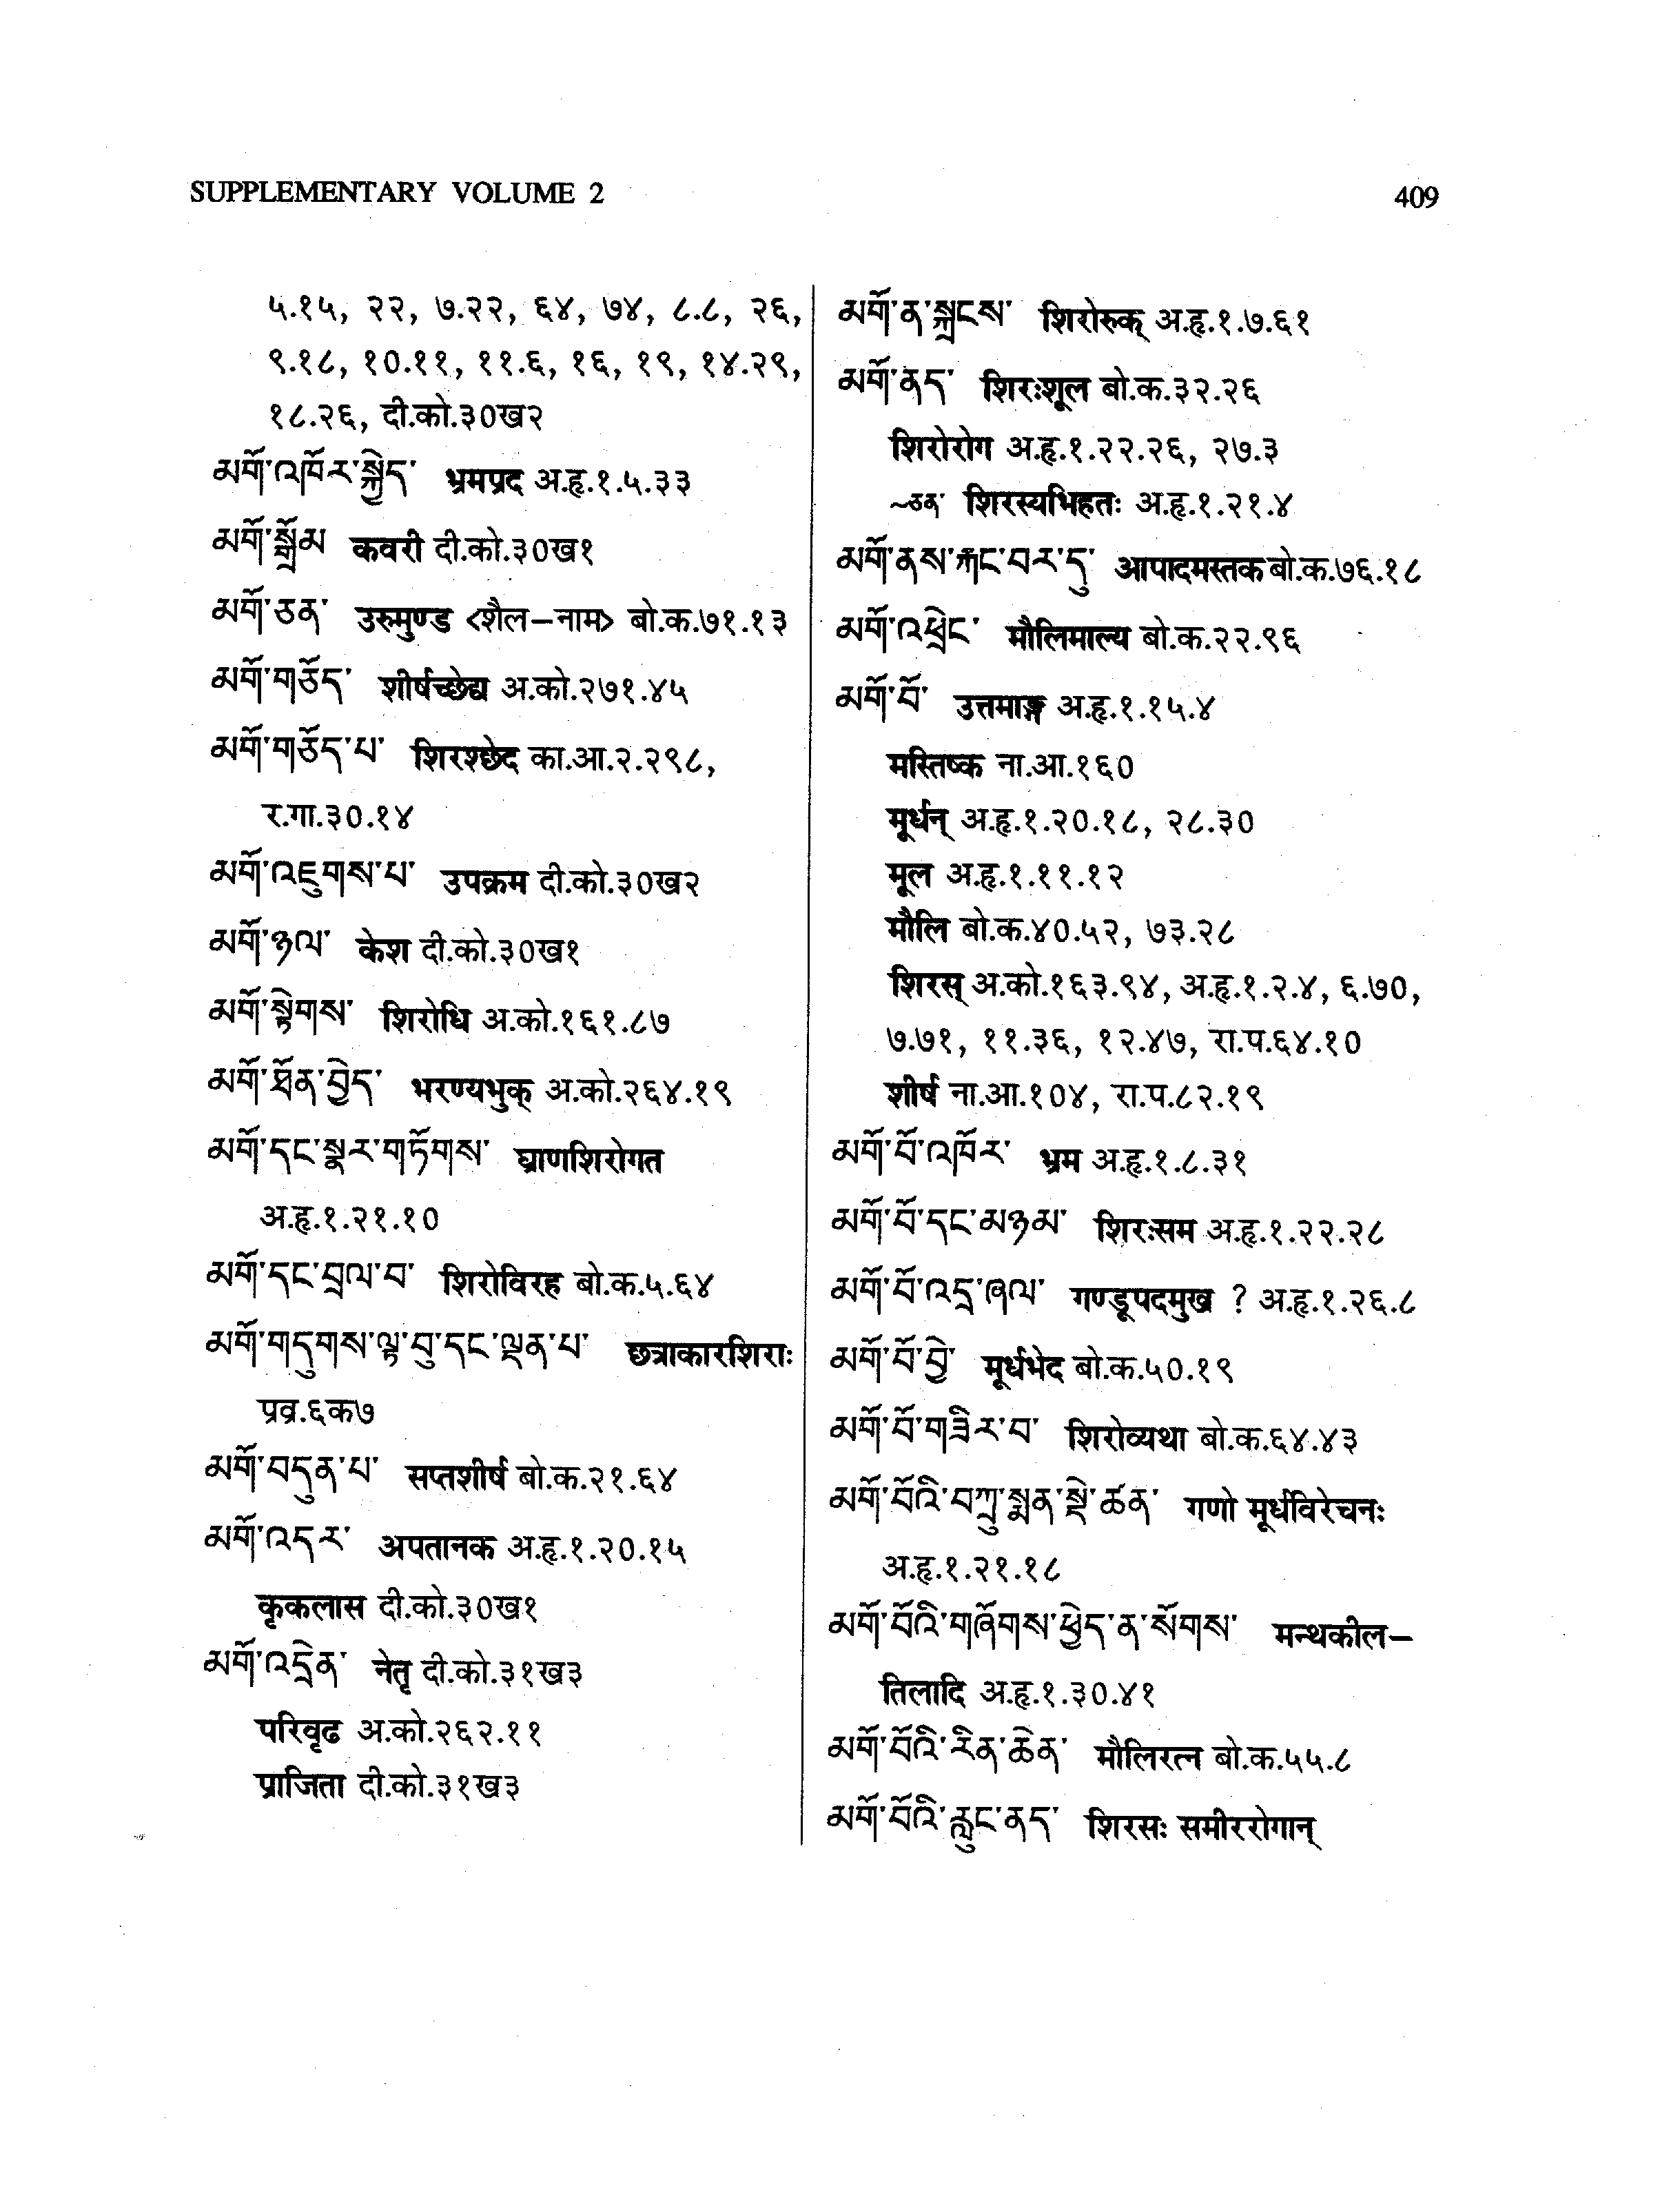 SUPPLEMENTARY VOLUME 2
409
५.१५, २२, ७.२२, ६४, ७४, ८.८, २६,
९.१८, १०.११, ११.६, १६, १९, १४.२९,
१८.२६, दी.को.३०ख२
མགོ་འཁོར་སྐྱེད་ भ्रमप्रद अ.हृ.१.५.३३
མགོ་སྒྲོམ कवरी दी.को.३०ख१
མགོ་ཅན་ उरुमुण्ड <शैल-नाम> बो.क.७१.१३
མགོ་གཅོད་ शीर्षच्छेद्य अ.को.२७१.४५
མགོ་གཅོད་པ་ शिरश्छेद का.आ.२.२९८,
र.गा.३०.१४
མགོ་འཇུགས་པ་ उपक्रम दी.को.३०ख२
མགོ་ཉལ་ केश दी.को.३०ख१
མགོ་སྟེགས་ शिरोधि अ.को.१६१.८७
མགོ་ཐོན་བྱེད་ भरण्यभुक् अ.को.२६४.१९
མགོ་དང་སྣར་གཏོགས་ घ्राणशिरोगत
अ.हृ.१.२१.१०
མགོ་དང་བྲལ་བ་ शिरोविरह बो.क.५.६४
མགོ་གདུགས་ལྟ་བུ་དང་ལྡན་པ་ छत्राकारशिराः
प्रव्र.६क७
མགོ་བདུན་པ་ सप्तशीर्ष बो.क.२१.६४
མགོ་འདར་ अपतानक अ.हृ.१.२०.१५
कृकलास दी.को.३०ख१
མགོ་འདྲེན་ नेतृ दी.को.३१ख३
परिवृढ अ.को.२६२.११
प्राजिता दी.को.३१ख३
མགོ་ན་སྐྲངས་ शिरोरुक् अ.हृ.१.७.६१
མགོ་ནད་ शिरःशूल बो.क.३२.२६
शिरोरोग अ.हृ.१.२२.२६, २७.३
~ཅན་ शिरस्यभिहतः अ.हृ.१.२१.४
མགོ་ནས་རྐང་བར་དུ་ आपादमस्तक बो.क.७६.१८
མགོ་འཕྲེང་ मौलिमाल्य बो.क.२२.९६
མགོ་བོ་ उत्तमाङ्ग अ.हृ.१.१५.४
मस्तिष्क ना.आ.१६०
मूर्धन् अ.हृ.१.२०.१८, २८.३०
मूल अ.हृ.१.११.१२
मौलि बो.क.४०.५२, ७३.२८
शिरस् अ.को.१६३.९४, अ.हृ.१.२.४, ६.७०,
७.७१, ११.३६, १२.४७, रा.प.६४.१०
शीर्ष ना.आ.१०४, रा.प.८२.१९
མགོ་བོ་འཁོར་ भ्रम अ.हृ.१.८.३१
མགོ་བོ་དང་མཉམ་ शिरःसम अ.हृ.१.२२.२८
མགོ་བོ་འདྲ་ཞལ་ गण्डूपदमुख ? अ.हृ.१.२६.८
མགོ་བོ་བྱེ་ मूर्धभेद बो.क.५०.१९
མགོ་བོ་གཟིར་བ་ शिरोव्यथा बो.क.६४.४३
མགོ་བོའི་བཀྲུ་སྨན་སྡེ་ཚན་ गणो मूर्धविरेचनः
अ.हृ.१.२१.१८
མགོ་བོའི་གཞོགས་ཕྱེད་ན་སོགས་ मन्थकील-
तिलादि अ.हृ.१.३०.४१
མགོ་བོའི་རིན་ཆེན་ मौलिरत्न बो.क.५५.८
མགོ་བོའི་རླུང་ནད་ शिरसः समीररोगान्